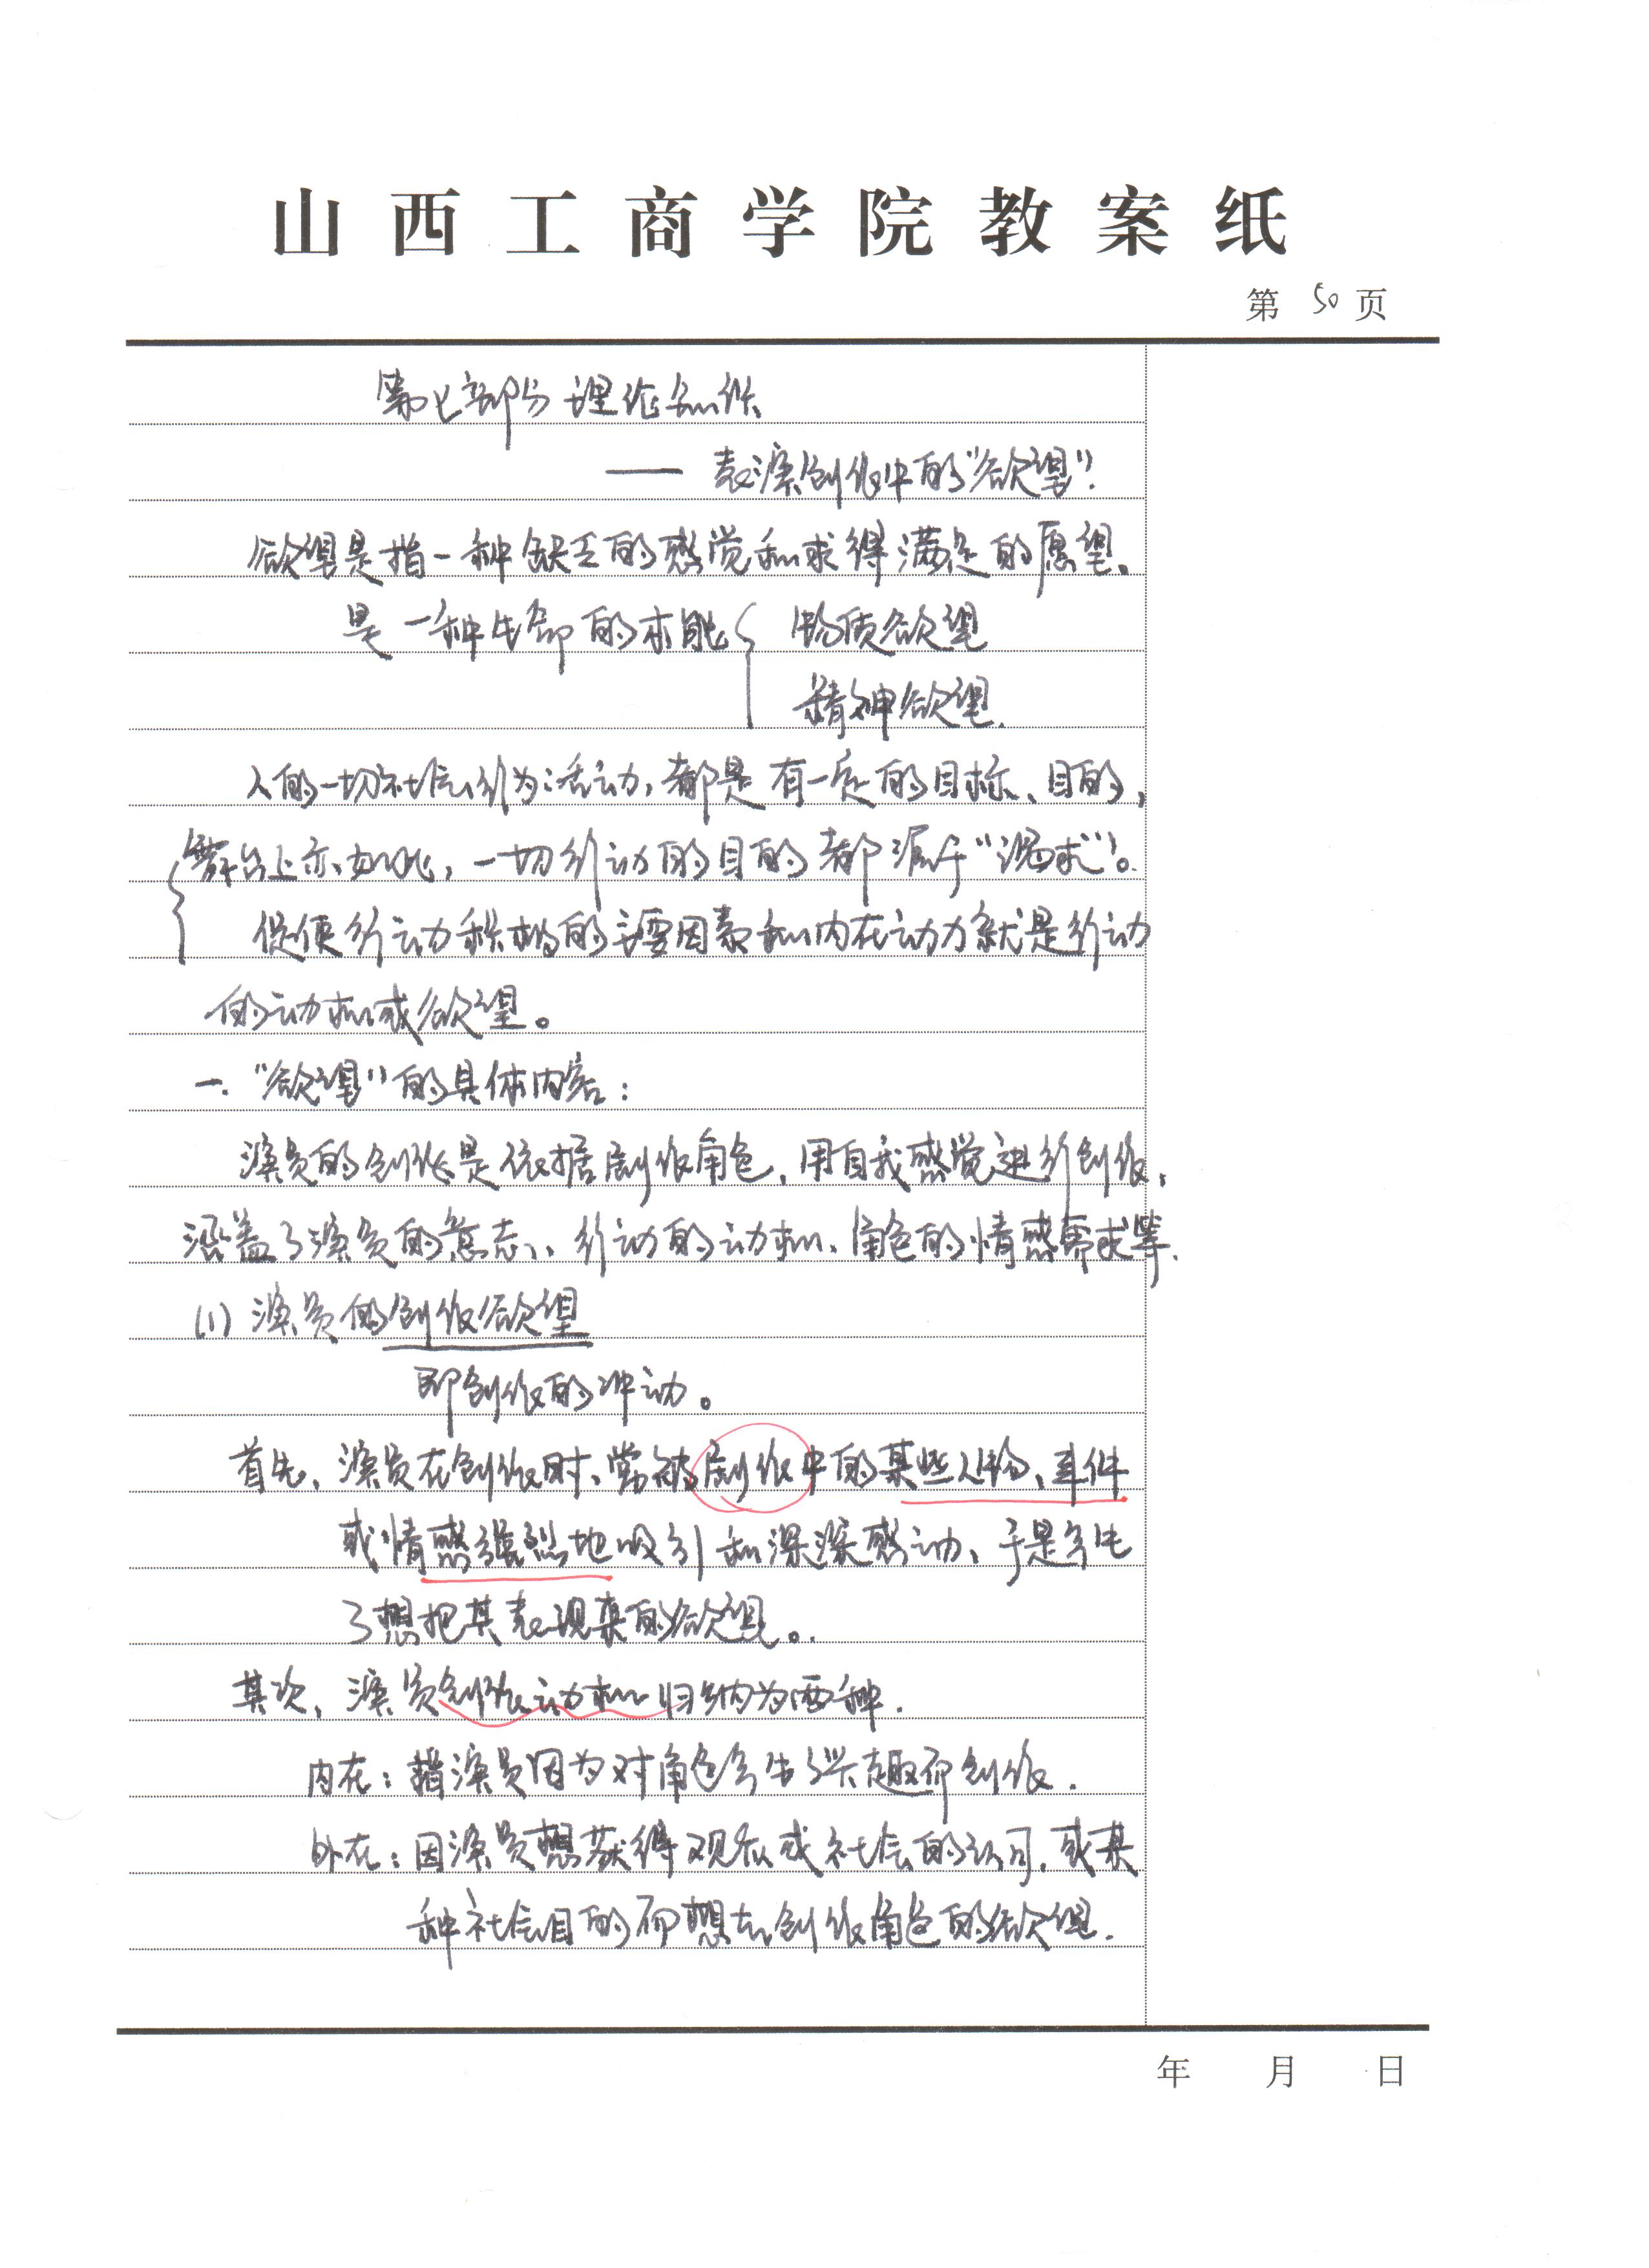 山西工商学院教案纸
第 50 页
第七部分 理论知识
—— 表演创作中的“欲望”
欲望是指一种缺乏的感觉和求得满足的愿望。
是一种生命的本能 { 物质欲望
精神欲望.
人的一切社会行为活动,都是有一定的目标、目的,
舞台上亦如此,一切行动的目的都源于“渴求”。
促使行动积极的主要因素和内在动力就是行动
的动机或欲望。
一.“欲望”的具体内容:
演员的创作是依据剧作角色,用自我感觉进行创作,
涵盖了演员的意志、行动的动机、角色的情感需求等.
(1) 演员的创作欲望
即创作的冲动。
首先,演员在创作时,常被剧作中的某些人物、事件
或情感强烈地吸引和深深感动,于是产生
了想把其表现来的欲望。
其次,演员创作动机归纳为两种.
内在:指演员因为对角色产生了兴趣而创作.
外在:因演员想获得观众或社会的认可,或某
种社会目的而想去创作角色的欲望.
年 月 日